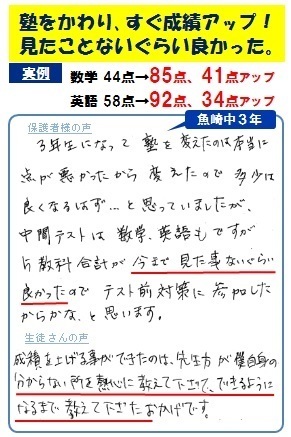 塾をかわり、すぐ成績アップ！
見たことないぐらい良かった。
実例 数学 44点→85点、41点アップ
英語 58点→92点、34点アップ
魚崎中３年
保護者様の声
３年生になって 塾を変えたのは本当に
点が悪かったから 変えたので 多少は
良くなるはず…と思っていましたが、
中間テストは 数学、英語もですが
５教科合計が 今まで見た事ないぐらい
良かったので テスト前対策に参加した
からかな、と思います。
生徒さんの声
成績を上げる事ができたのは、先生方が僕自身の
分からない所を熱心に教えて下さって、できるように
なるまで教えて下さったおかげです。